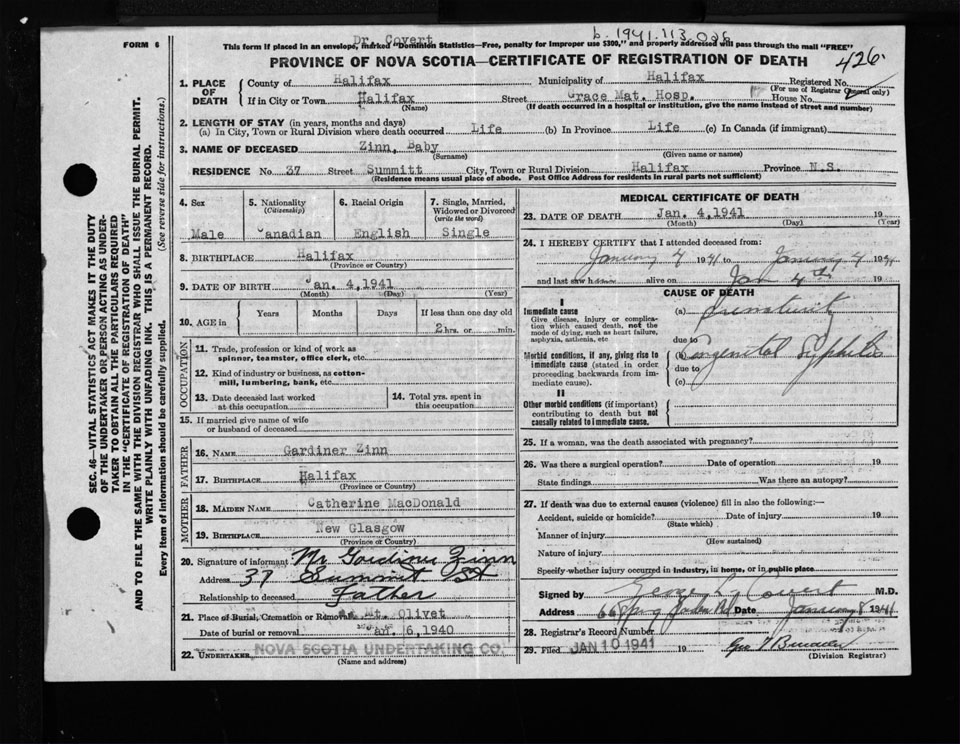 Dr. Covert
b. 1941.113.026
FORM 6
This form if placed in an envelope, marked "Dominion Statistics—Free, penalty for improper use $300," and properly addressed will pass through the mail "FREE"
PROVINCE OF NOVA SCOTIA—CERTIFICATE OF REGISTRATION OF DEATH
426
1. PLACE OF DEATH
County of Halifax Municipality of Halifax Registered No.
(For use of Registrar General only)
If in City or Town Halifax Street Grace Mat. Hosp. House No.
(Name) (If death occurred in a hospital or institution, give the name instead of street and number)
2. LENGTH OF STAY (in years, months and days)
(a) In City, Town or Rural Division where death occurred Life (b) In Province Life (c) In Canada (if immigrant)
3. NAME OF DECEASED Zinn, Baby
(Surname) (Given name or names)
RESIDENCE No. 37 Street Summitt City, Town or Rural Division Halifax Province N.S.
(Residence means usual place of abode. Post Office Address for residents in rural parts not sufficient)
4. Sex
Male
5. Nationality (Citizenship)
Canadian
6. Racial Origin
English
7. Single, Married, Widowed or Divorced (write the word)
Single
8. BIRTHPLACE Halifax
(Province or Country)
9. DATE OF BIRTH Jan. 4,1941
(Month) (Day) (Year)
10. AGE in
Years Months Days If less than one day old
2 hrs. or min.
OCCUPATION
11. Trade, profession or kind of work as spinner, teamster, office clerk, etc.
12. Kind of industry or business, as cotton-mill, lumbering, bank, etc.
13. Date deceased last worked at this occupation
14. Total yrs. spent in this occupation
15. If married give name of wife or husband of deceased
FATHER
16. NAME Gardiner Zinn
17. BIRTHPLACE Halifax
(Province or Country)
MOTHER
18. MAIDEN NAME Catherine MacDonald
19. BIRTHPLACE New Glasgow
(Province or Country)
20. Signature of informant Mr Gardiner Zinn
Address 37 Summit St
Relationship to deceased Father
21. Place of Burial, Cremation or Removal Mt. Olivet
Date of burial or removal Jan. 6,1940
22. UNDERTAKER NOVA SCOTIA UNDERTAKING CO.
(Name and address)
MEDICAL CERTIFICATE OF DEATH
23. DATE OF DEATH Jan. 4,1941 19
(Month) (Day) (Year)
24. I HEREBY CERTIFY that I attended deceased from:
January 4 1941 to January 4 1941
and last saw h alive on Jan 4th 19
CAUSE OF DEATH
I
Immediate cause
Give disease, injury or complication which caused death, not the mode of dying, such as heart failure, asphyxia, asthenia, etc
(a) Prematurity
due to
Morbid conditions, if any, giving rise to immediate cause (stated in order proceeding backwards from immediate cause).
(b) Congenital Syphilis
due to
(c)
II
Other morbid conditions (if important) contributing to death but not causally related to immediate cause.
25. If a woman, was the death associated with pregnancy?
26. Was there a surgical operation? Date of operation 19
State findings Was there an autopsy?
27. If death was due to external causes (violence) fill in also the following:—
Accident, suicide or homicide? Date of injury 19
(State which)
Manner of injury
(How sustained)
Nature of injury
Specify whether injury occurred in industry, in home, or in public place
Signed by George L. Covert M.D.
Address 66 Spring Garden Rd Date January 8 1941
28. Registrar's Record Number
29. Filed JAN 10 1941 19
(Division Registrar)
SEC. 46—VITAL STATISTICS ACT MAKES IT THE DUTY
OF THE UNDERTAKER OR PERSON ACTING AS UNDER-
TAKER TO OBTAIN ALL THE PARTICULARS REQUIRED
IN THE "CERTIFICATE OF REGISTRATION OF DEATH"
AND TO FILE THE SAME WITH THE DIVISION REGISTRAR WHO SHALL ISSUE THE BURIAL PERMIT.
WRITE PLAINLY WITH UNFADING INK. THIS IS A PERMANENT RECORD.
Every item of information should be carefully supplied. (See reverse side for instructions.)